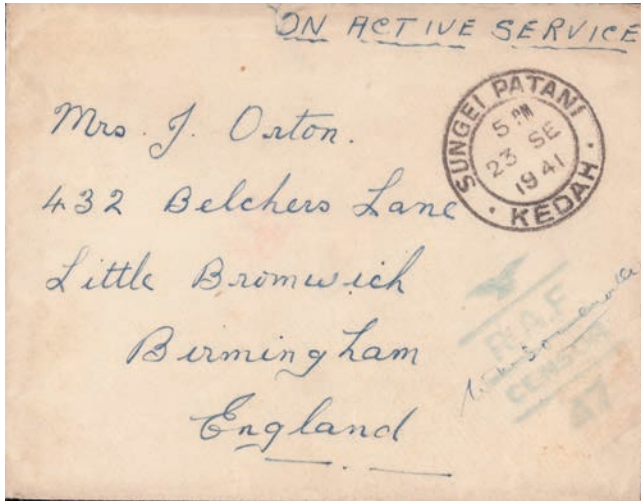 ON ACTIVE SERVICE
SUNGEI PATANI
5 PM
23 SE
1941
· KEDAH ·
Mrs. J. Orton.
432 Belchers Lane
Little Bromwich
Birmingham
England
R.A.F
CENSOR
47